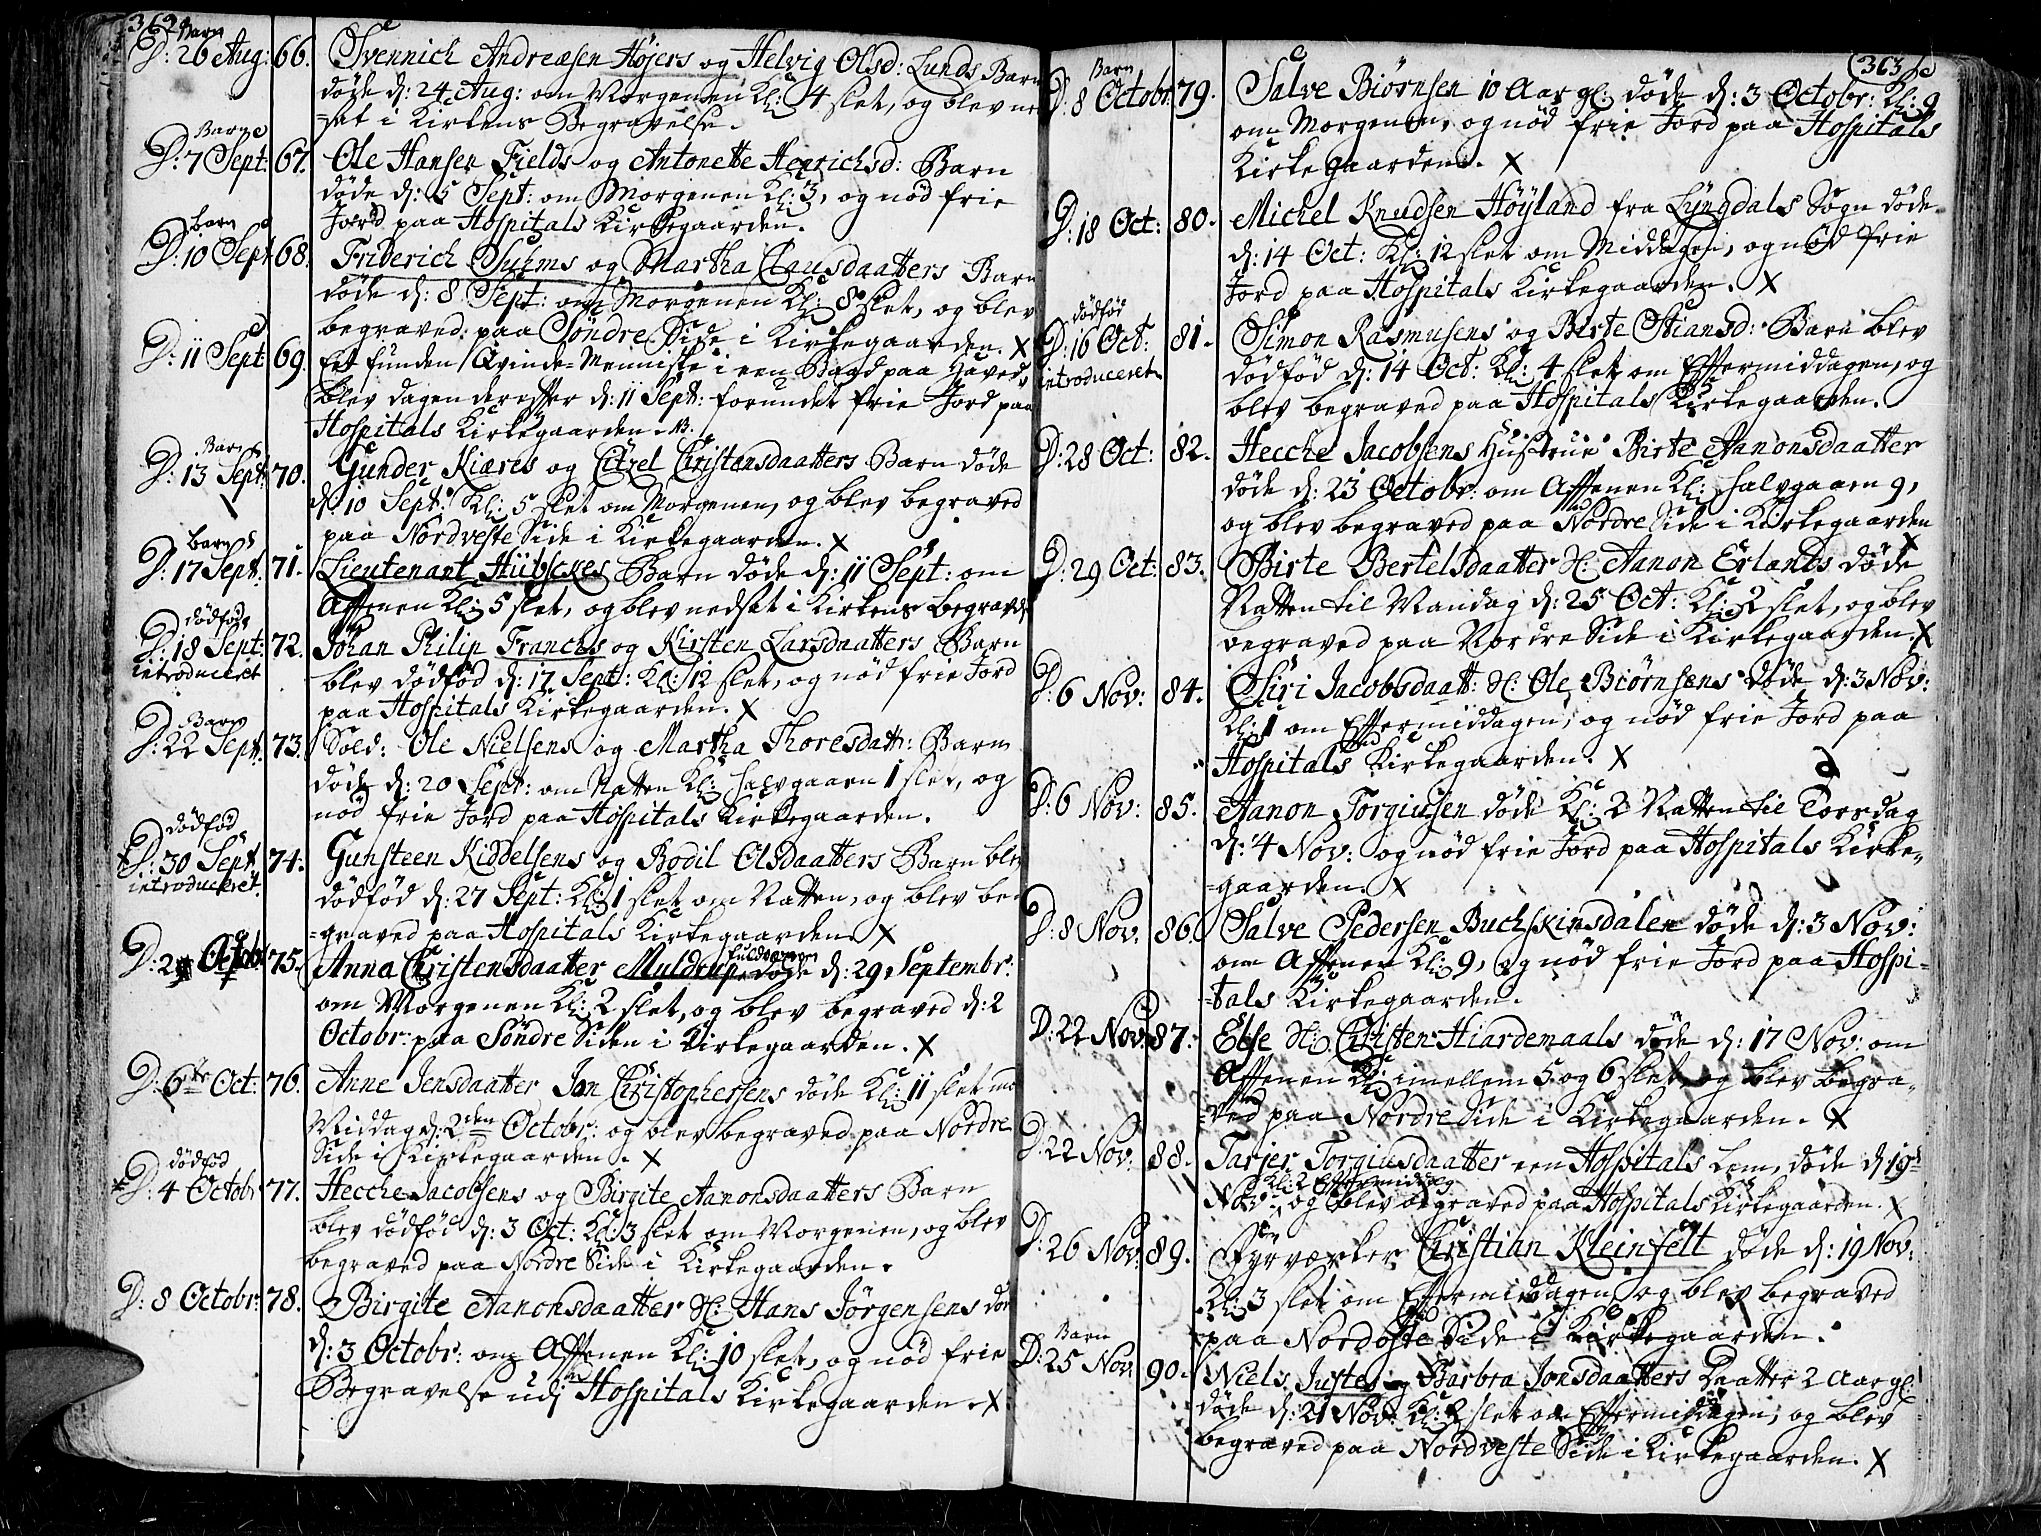 362.
Barn
D: 26 Aug: 66. Svennich Andreæsen Höjers og Helvig Olsd: Lunds Barn
döde d: 24 Aug: om Morgenen Kl: 4 slet, og blev ned
-sat i Kirkens Begravelse.
Barn
D: 7 Sept: 67. Ole Hansen Fields og Antonette Henrichsd: Barn
döde d: 5 Sept: om Morgenen Kl: 3, og nöd frie
Jord paa Hospitals Kirkegaarden.
barn
D: 10 Sept 68. Friderich Suhms og Martha Clausdaatters Barn
döde d: 8 Sept: om Morgenen Kl: 8 slet, og blev
begraved paa Söndre Side i Kirkegaarden. X
D: 11 Sept 69. Eet funden Qvinde-Menniske i een Baad paa Haved
blev dagen derefter d: 11 Sept: forundet frie Jord paa
Hospitals Kirkegaarden. NB.
Barn
D: 13 Sept: 70. Gunder Kiæres og Citzel Christensdaatters Barn döde
d: 10 Sept: Kl: 5 slet om Morgenen, og blev begraved
paa Nordveste Side i Kirkegaarden. X
barn
D: 17 Sept: 71. Lieutenant Hübsches Barn döde d: 11 Sept: om
Aftenen Kl: 5 slet, og blev nedsat i Kirkens begravels
dödföd
D: 18 Sept: 72. Johan Philip Franchs og Kirsten Larsdaatters Barn
introduceret blev dödföd d: 17 Sept: Kl: 12 slet, og nöd frie Jord
paa Hospitals Kirkegaarden. X
Barn
D: 22 Sept: 73. Sold: Ole Nielsens og Martha Thoresdatt: Barn
döde d: 20 Sept: om Natten Kl: halvgaaen 1 slet, og
nöd frie Jord paa Hospitals Kirkegaarden.
dödföd
D: 30 Sept. 74. Gunsteen Kiddelsens og Bodil Olsdaatters Barn blev
introduceret. dödföd d: 27 Sept: Kl: 1 slet om Natten, og blev be
-graved paa Hospitals Kirkegaarden X
D: 2 Octobr 75. Anna Christensdaatter Muldrup döde d: 29 Septembr:
om Morgenen Kl: 2 slet, og blev begraved d: 2
Octobr: paa Söndre Siden i Kirkegaarden. X
D: 6te Oct: 76. Anne Jensdaatter Jon Christophersens döde Kl: 11 slet mod
Middag d: 2den Octobr: og blev begraved paa Nordre
Side i Kirkegaarden. X
dödföd
D: 4 Octobr 77. Hecche Jacobsens og Birgite Aanonsdaatters Barn
blev dödföd d: 3 Oct: Kl: 3 slet om Morgenen, og blev
begraved paa Nordre Side i Kirkegaarden.
D: 8 Octobr: 78. Birgite Aanonsdaatter H: Hans Jörgensens döde
d: 3 Octobr: om Aftenen Kl: 10 slet, og nöd frie
Begravelse udj Hospitals Kirkegaarden. X
363
Barn
D: 8 Octobr 79. Salve Biörnsen 10 Aar gl: döde d: 3 Octobr: Kl: 9
om Morgenen, og nöd frie Jord paa Hospitals
Kirkegaarden. X
D: 18 Oct: 80. Michel Knudsen Höyland fra Lyngdals Sogn döde
d: 14 Oct: Kl: 12 slet om Middagen, og nöd frie
Jord paa Hospitals Kirkegaarden. X
dödföd
D: 16 Oct: 81. Simon Rasmusens og Birte Stiansd: Barn blev
introduceret dödföd d: 14 Oct: Kl: 4 slet om Eftermiddagen, og
blev begraved paa Hospitals Kirkegaarden.
D: 28 Oct: 82. Hecche Jacobsens Hustrue Birte Aanonsdaatter
döde d: 23 Octobr: om Aftenen Kl: halvgaaen 9,
og blev begraved paa Nordre Side i Kirkegaarden X
D: 29 Oct: 83. Birte Bertelsdaatter H: Aanon Erlands döde
Natten til Mandag d: 25 Oct: Kl: 2 slet, og blev
begraved paa Nordre Side i Kirkegaarden. X
D: 6 Nov: 84. Siri Jacobsdaatt: H: Ole Biörnsens döde d: 3 Nov:
Kl: 1 om Eftermiddagen, og nöd frie Jord paa
Hospitals Kirkegaarden. X
D: 6 Nov: 85. Aanon Torgiusen döde Kl: 2 Natten til Torsdag
d: 4 Nov: og nöd frie Jord paa Hospitals Kirke-
-gaarden. X
D: 8 Nov. 86. Salve Pedersen Buchskinsdalen döde d: 3 Nov:
om Aftenen Kl: 9, og nöd frie Jord paa Hospi-
-tals Kirkegaarden.
D: 22 Nov: 87. Else H: Christen Hiardemaals döde d: 17 Nov: om
Aftenen Kl: imellem 5 og 6 slet, og blev begra-
-ved paa Nordre Side i Kirkegaarden. X
D: 22 Nov: 88. Tarjer Torgiusdaatter een Hospitals Lem, döde d 19d
Kl: 2 Eftermiddag
Nov: og blev begraved paa Hospitals Kirkegaarden. X
D: 26 Nov: 89. Fyrværker Christian Kleinfelt döde d: 19 Nov:
Kl: 3 slet om Eftermiddagen, og blev begraved
paa Nordöste Side i Kirkegaarden.
Barn
D: 25 Nov: 90. Niels Justes og Barbra Jonsdaatters Daatter 2 Aar gl:
döde d: 21 Nov: Kl: 2 slet om Eftermiddagen, og blev
begraved paa Nordveste Side i Kirkegaarden. X